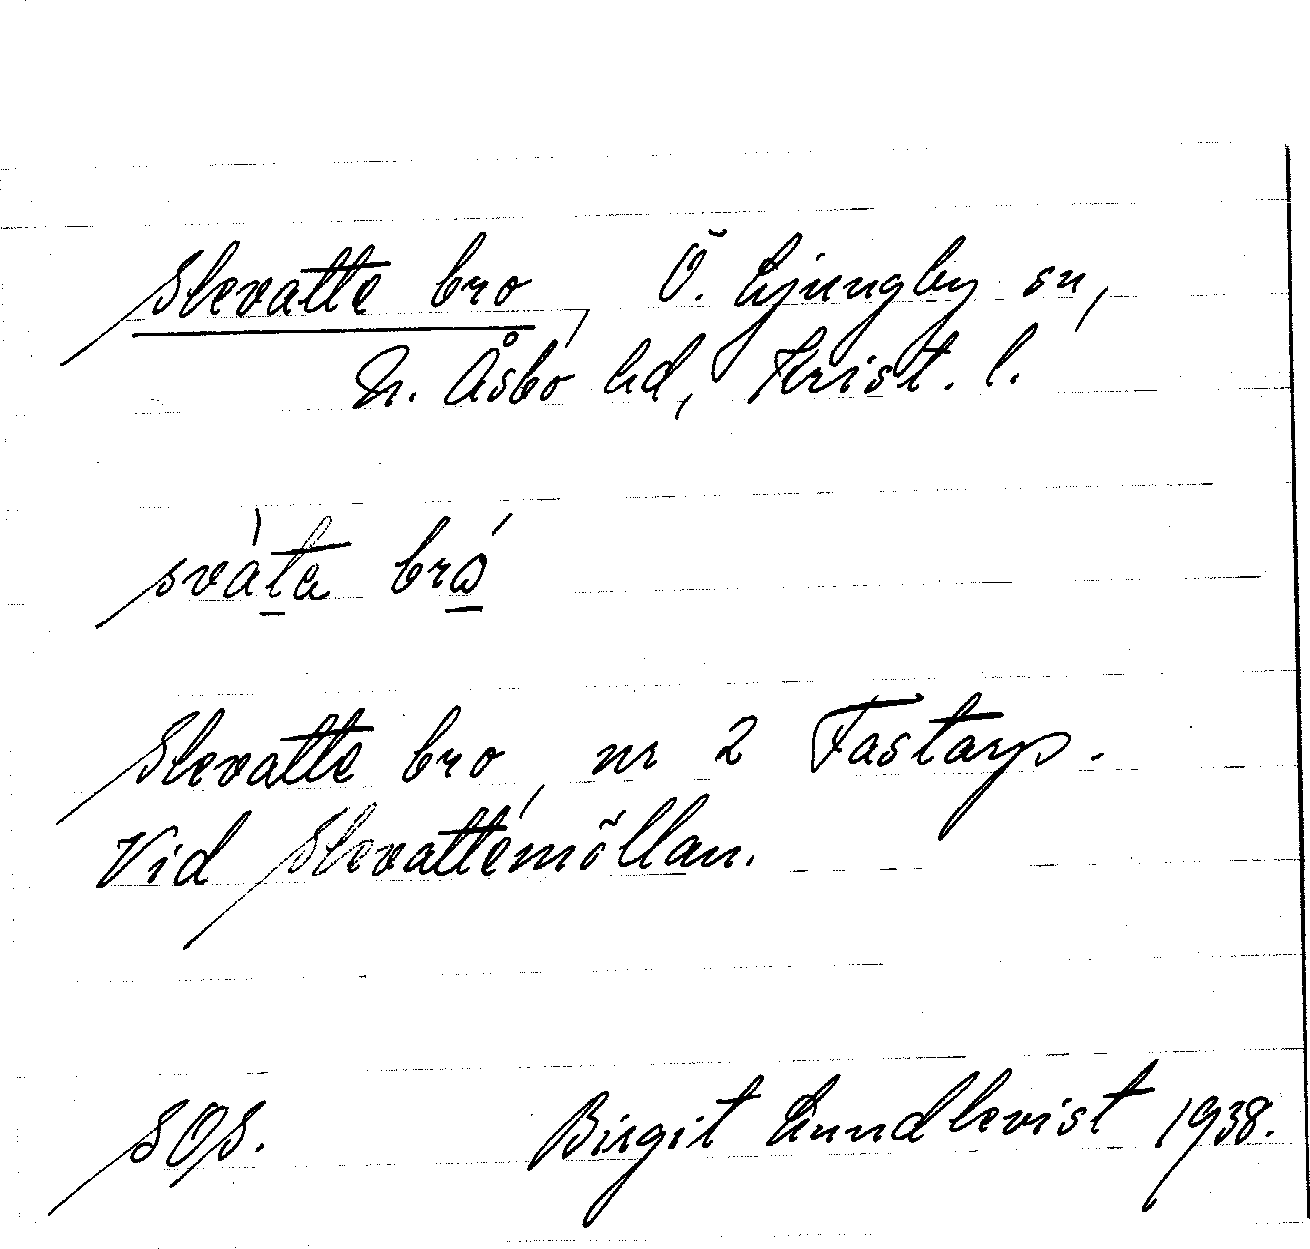 Skvatte bro, Ö. Ljungby sn,
N. Åsbo hd, Krist. l.
svàta bró
Skvatte bro, nr 2 Tastarp.
Vid Skvattemöllan.
SOS. Birgit Lundkvist 1938.